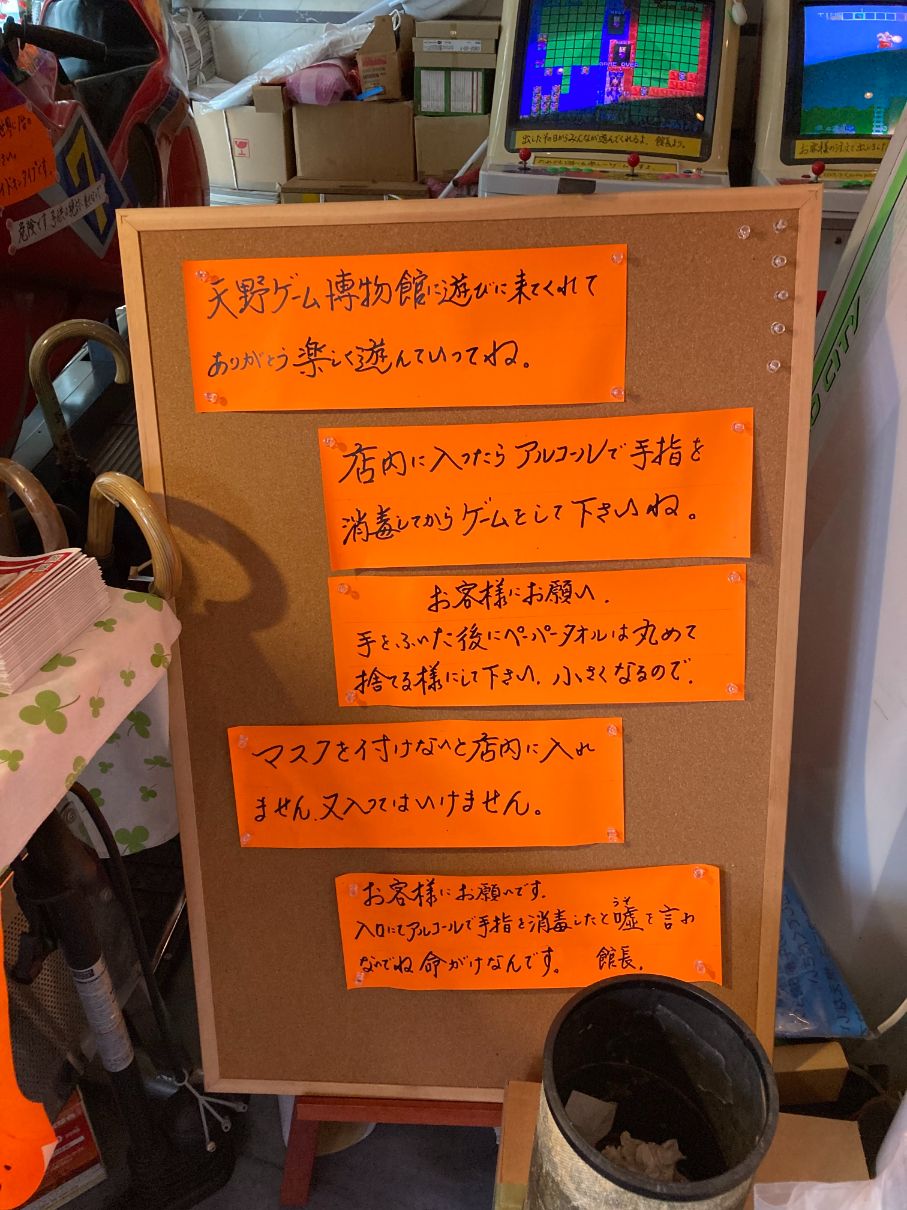 出したその日からみんなが遊んでくれるよ。館長より。
お客様の注文で出しました
危険です
GAME OVER
天野ゲーム博物館に遊びに来てくれて
ありがとう楽しく遊んでいってね。
店内に入ったらアルコールで手指を
消毒してからゲームをして下さいね。
お客様にお願い.
手をふいた後にペーパータオルは丸めて
捨てる様にして下さい.小さくなるので.
マスクを付けないと店内に入れ
ません.又入ってはいけません。
お客様にお願いです.
入口にてアルコールで手指を消毒したと嘘を言わ
うそ
ないでね命がけなんです。 館長.
CITY